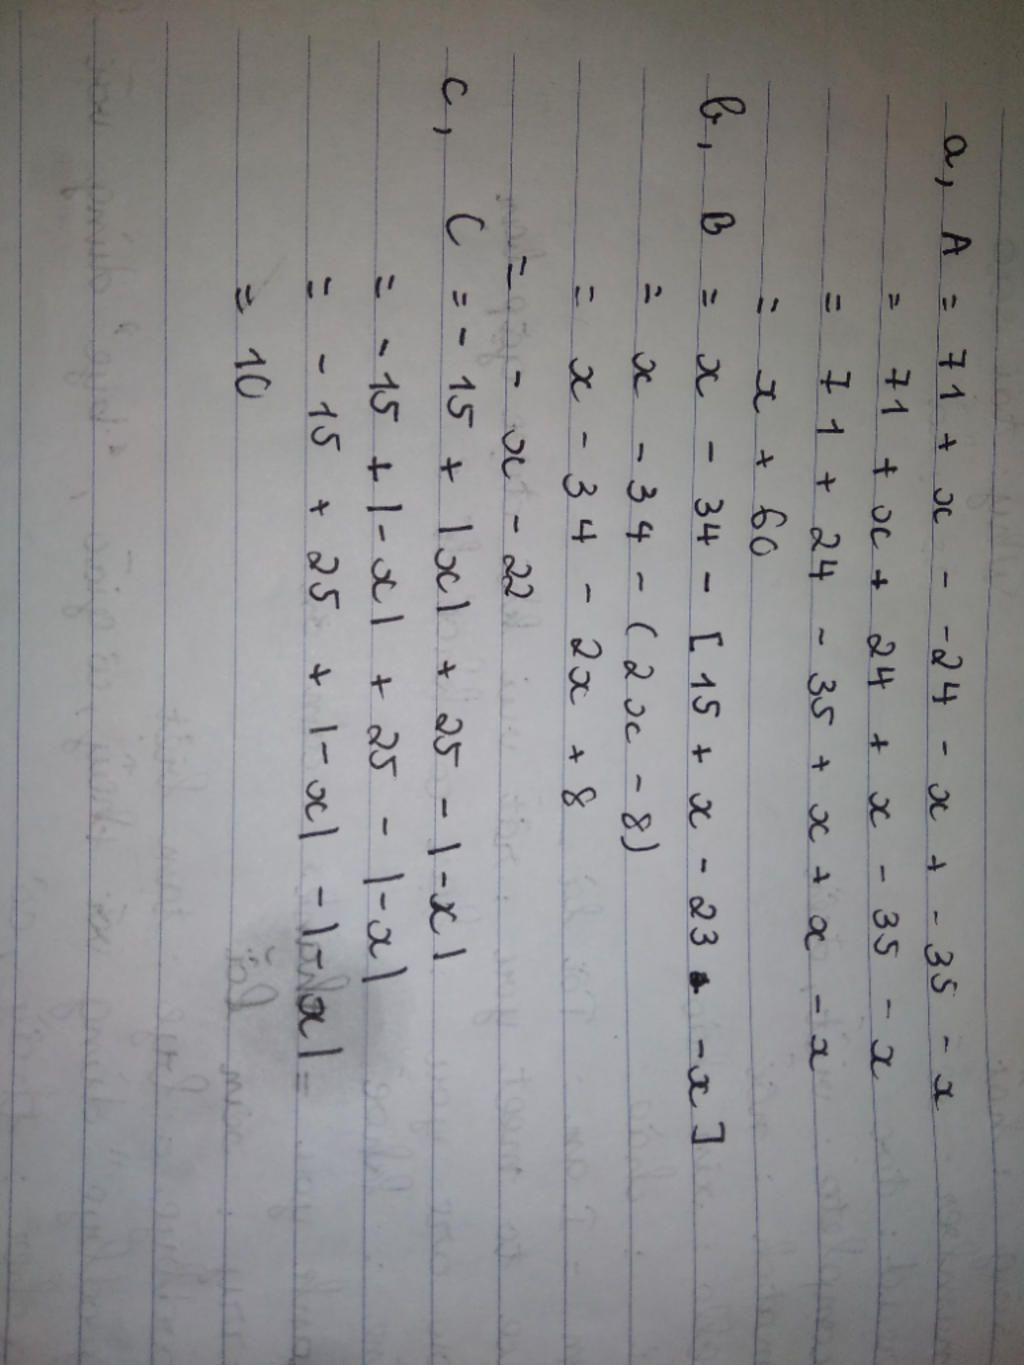 a, A = 71 + x - -24 - x + -35 - x
= 71 + x + 24 + x - 35 - x
= 71 + 24 - 35 + x + x - x
= x + 60
b, B = x - 34 - [15 + x - 23 - -x]
= x - 34 - (2x - 8)
= x - 34 - 2x + 8
= - x - 22
c, C = - 15 + |x| + 25 - |-x|
= - 15 + |-x| + 25 - |-x|
= - 15 + 25 + |-x| - |-x| =
= 10